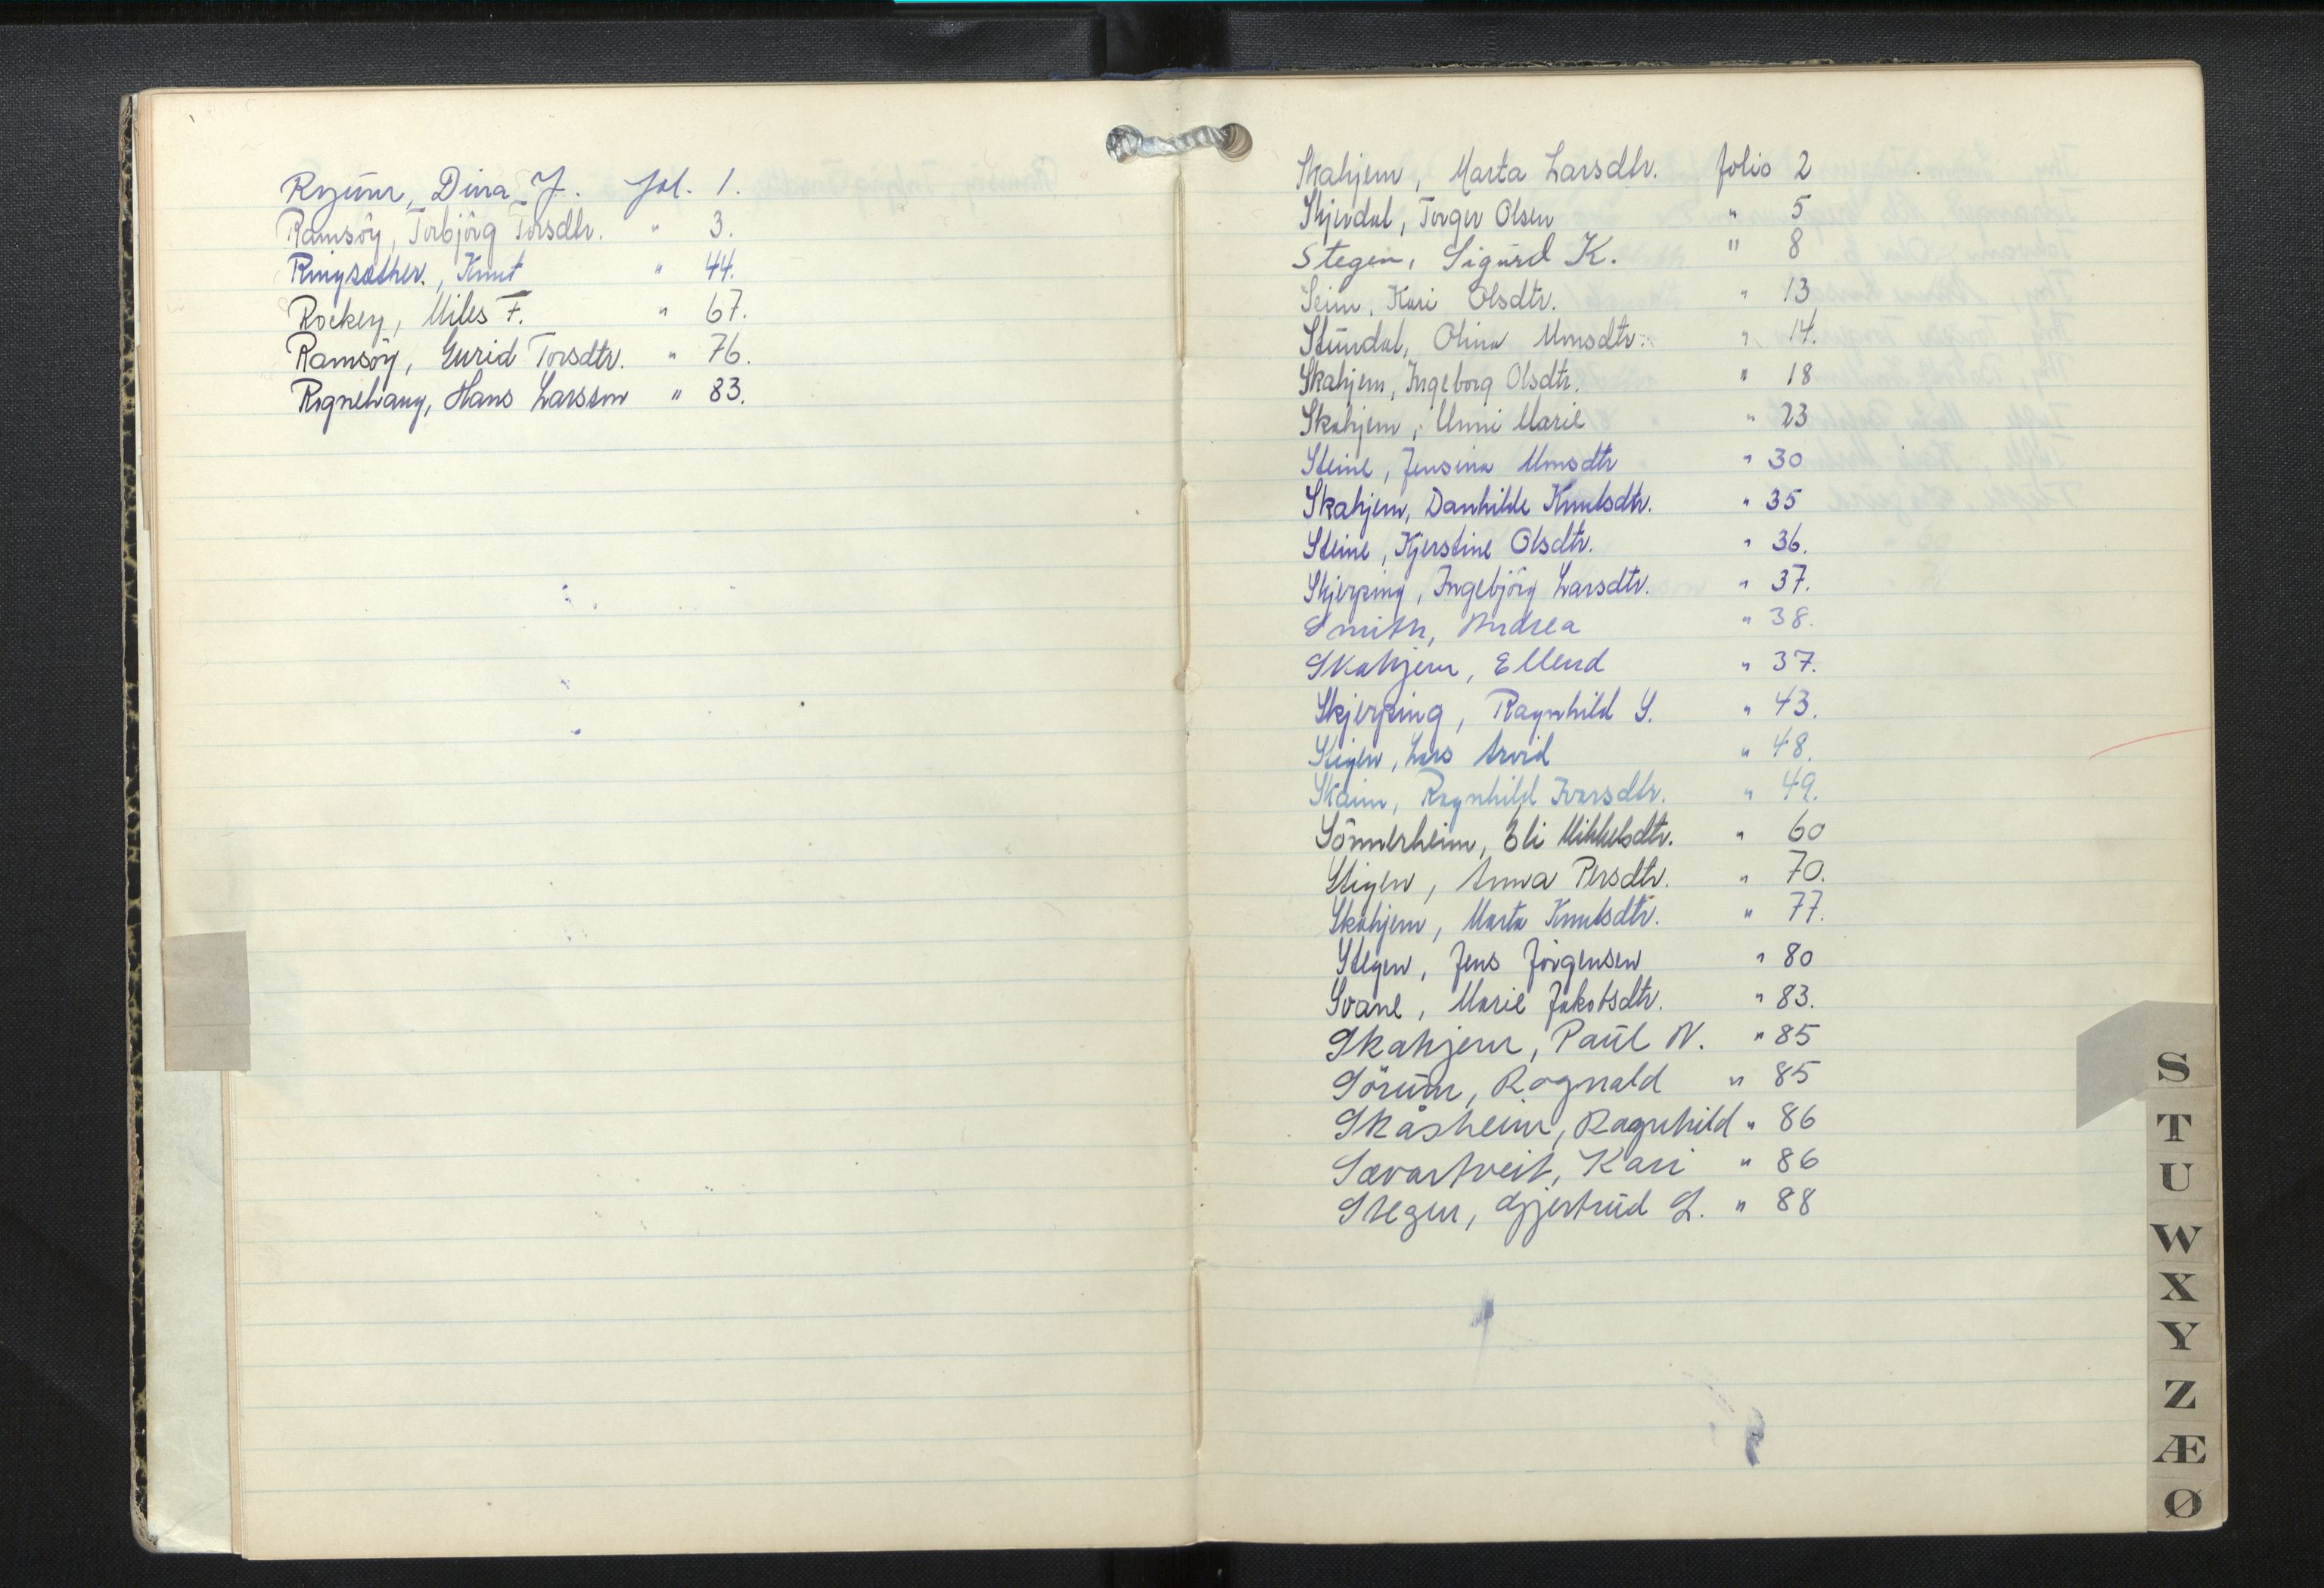 Ryum, Dina J. fol. 1.
Ramsöy, Torbjörg Torsdtr. " 3.
Ringsæther., Knut " 44.
Rockey, Miles F. " 67.
Ramsöy, Gurid Torsdtr. " 76.
Rognehaug, Hans Larsson " 83.
Skahjem, Marta Larsdtr. folio 2
Skjerdal, Torger Olsen " 5
Stegen, Sigurd K. " 8
Seim, Kari Olsdtr. " 13
Stundal, Olina Monsdtr. " 14.
Skahjem, Ingeborg Olsdtr. " 18
Skahjem, Unni Marie " 23
Steine, Jensina Monsdtr " 30
Skahjem, Danhilde Knutsdtr. " 35
Steine, Kjerstine Olsdtr. " 36.
Skjerping, Ingebjörg Larsdtr. " 37.
Smith, Andrea " 38.
Skahjem, Ellend " 37.
Skjerping, Ragnhild S. " 43.
Stigen, Lars Arvid " 48.
Skaim, Ragnhild Ivarsdtr. " 49.
Sönnerheim, Eli Mikkelsdtr. " 60
Stigen, Anna Persdtr. " 70.
Skahjem, Marta Knutsdtr. " 77.
Stegen, Jens Jörgensen " 80
Svane, Marie Jakobsdtr. " 83.
Skahjem, Paul N. " 85
Sörum, Rognald " 85
Skåsheim, Ragnhild " 86
Sævartveit, Kari " 86
Stegen, Gjertrud L. " 88
S
T
U
W
X
Y
Z
Æ
Ø